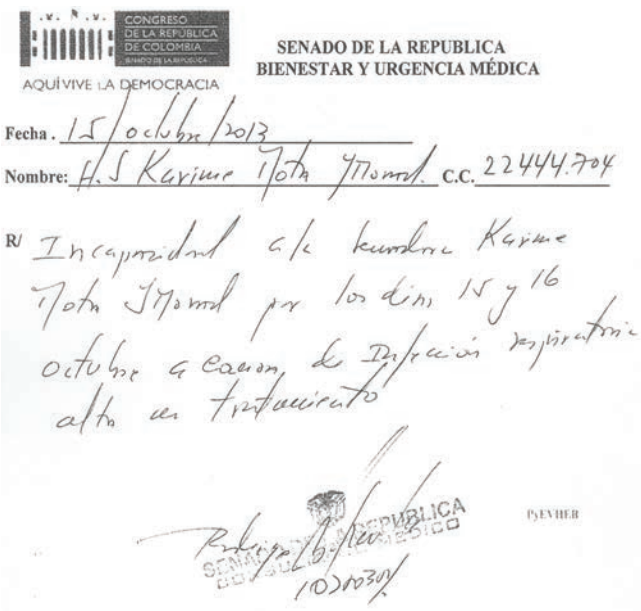 CONGRESO
DE LA REPÚBLICA
DE COLOMBIA
SENADO DE LA REPÚBLICA
AQUÍ VIVE LA DEMOCRACIA
SENADO DE LA REPUBLICA
BIENESTAR Y URGENCIA MÉDICA
Fecha. 15/octubre/2013
Nombre: H.S Karime Mota y Morad. C.C. 22444.704
R/ Incapacidad a la senadora Karime
Mota y Morad por los dias 15 y 16
octubre a causa de Infección respiratoria
alta en tratamiento
SENADO DE LA REPUBLICA
CONSULTORIO MEDICO